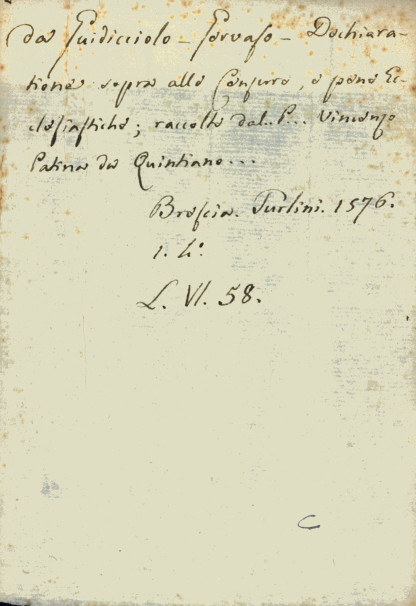 da Guidicciolo - Gervaso - Dechiara-
tione sopra alle Censure, e pene Ec-
clesiastiche; raccolte dal..P... Vincenzo
Patina da Quintiano...
Brescia. Turlini. 1576.
1. 4º.
L. VI. 58.
C